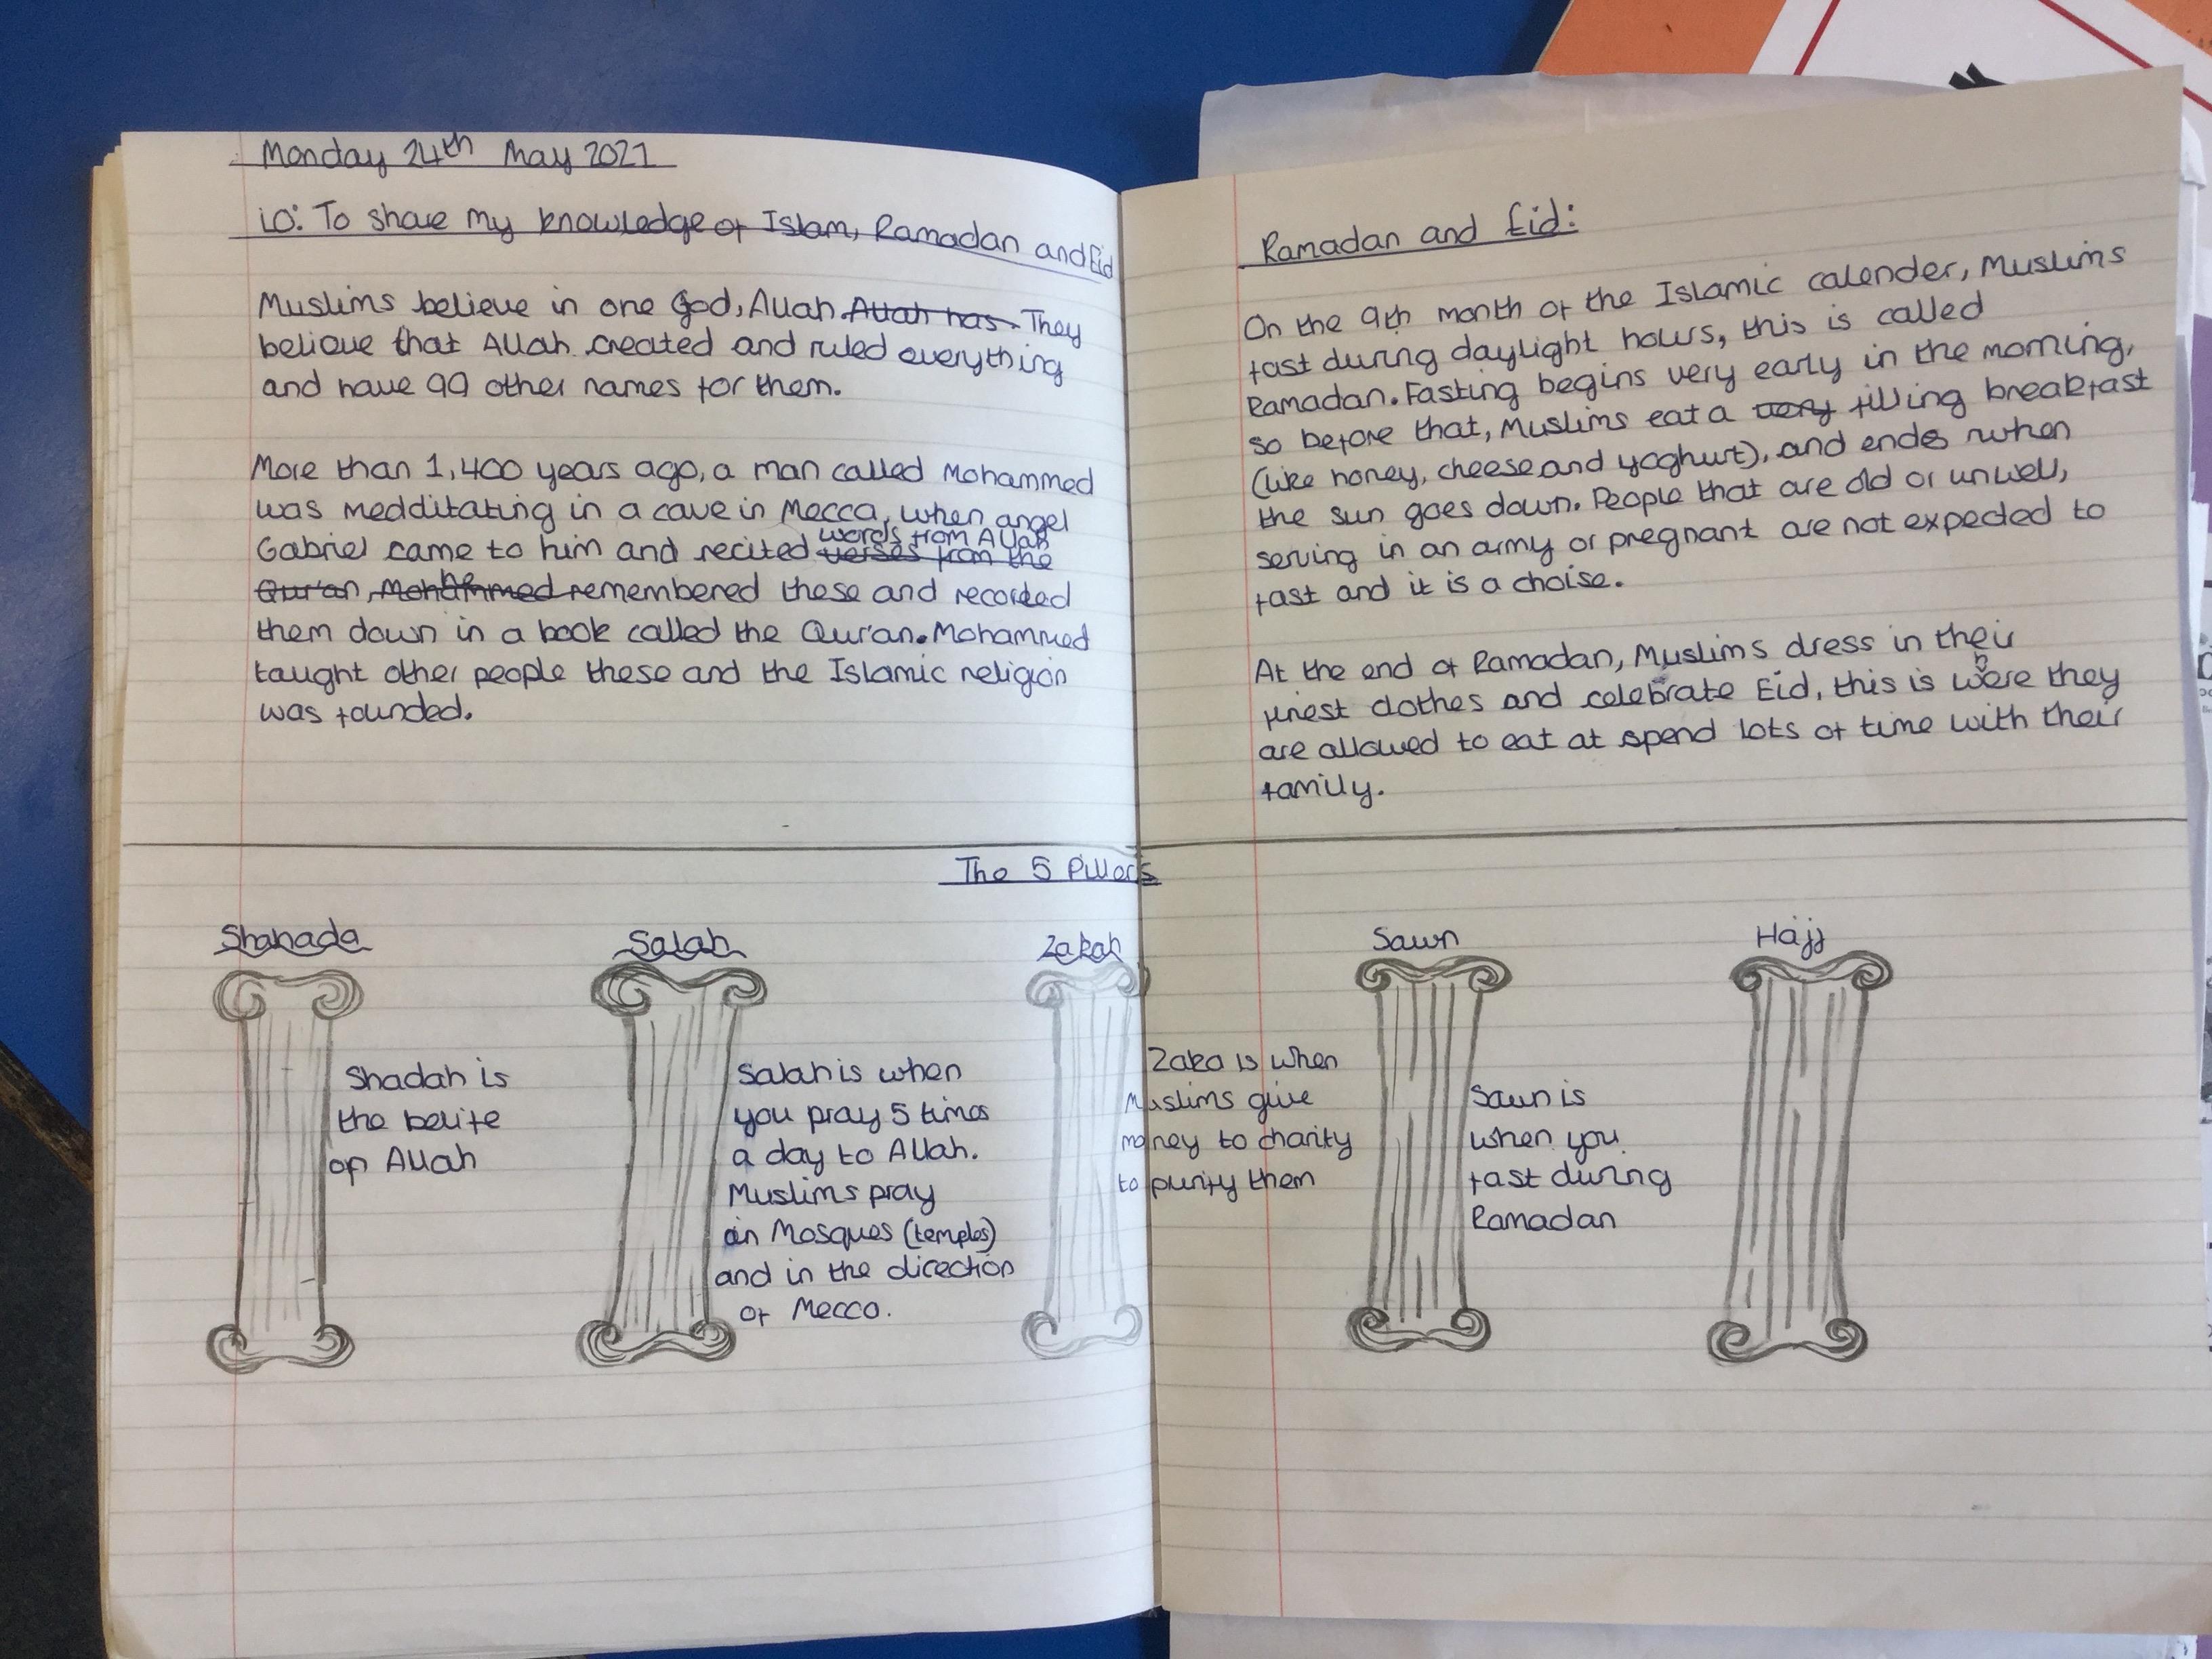 Monday 24th May 2021
LO: To share my knowledge of Islam, Ramadan and Eid
Muslims believe in one God, Allah. Allah has. They
believe that Allah created and ruled everything
and have 99 other names for them.
More than 1,400 years ago, a man called Mohammed
was medditating in a cave in Mecca, when angel
Gabriel came to him and recited words from Allah verses from the
Qur'an, Mohammed he remembered these and recorded
them down in a book called the Qur'an. Mohammed
taught other people these and the Islamic religion
was founded.
Ramadan and Eid:
On the 9th month of the Islamic calender, Muslims
fast during daylight hours, this is called
Ramadan. Fasting begins very early in the morning,
so before that, Muslims eat a very filling breakfast
(like honey, cheese and yoghurt), and ends when
the sun goes down. People that are old or unwell,
serving in an army or pregnant are not expected to
fast and it is a choise.
At the end of Ramadan, Muslims dress in their
finest clothes and celebrate Eid, this is where they
are allowed to eat at spend lots of time with their
family.
The 5 Pillars
Shahada
Shadah is
the belife
of Allah
Salah
Salah is when
you pray 5 times
a day to Allah.
Muslims pray
in Mosques (temples)
and in the direction
of Mecca.
Zakah
Zaka is when
Muslims give
money to charity
to purify them
Sawn
Sawn is
when you
fast during
Ramadan
Hajj